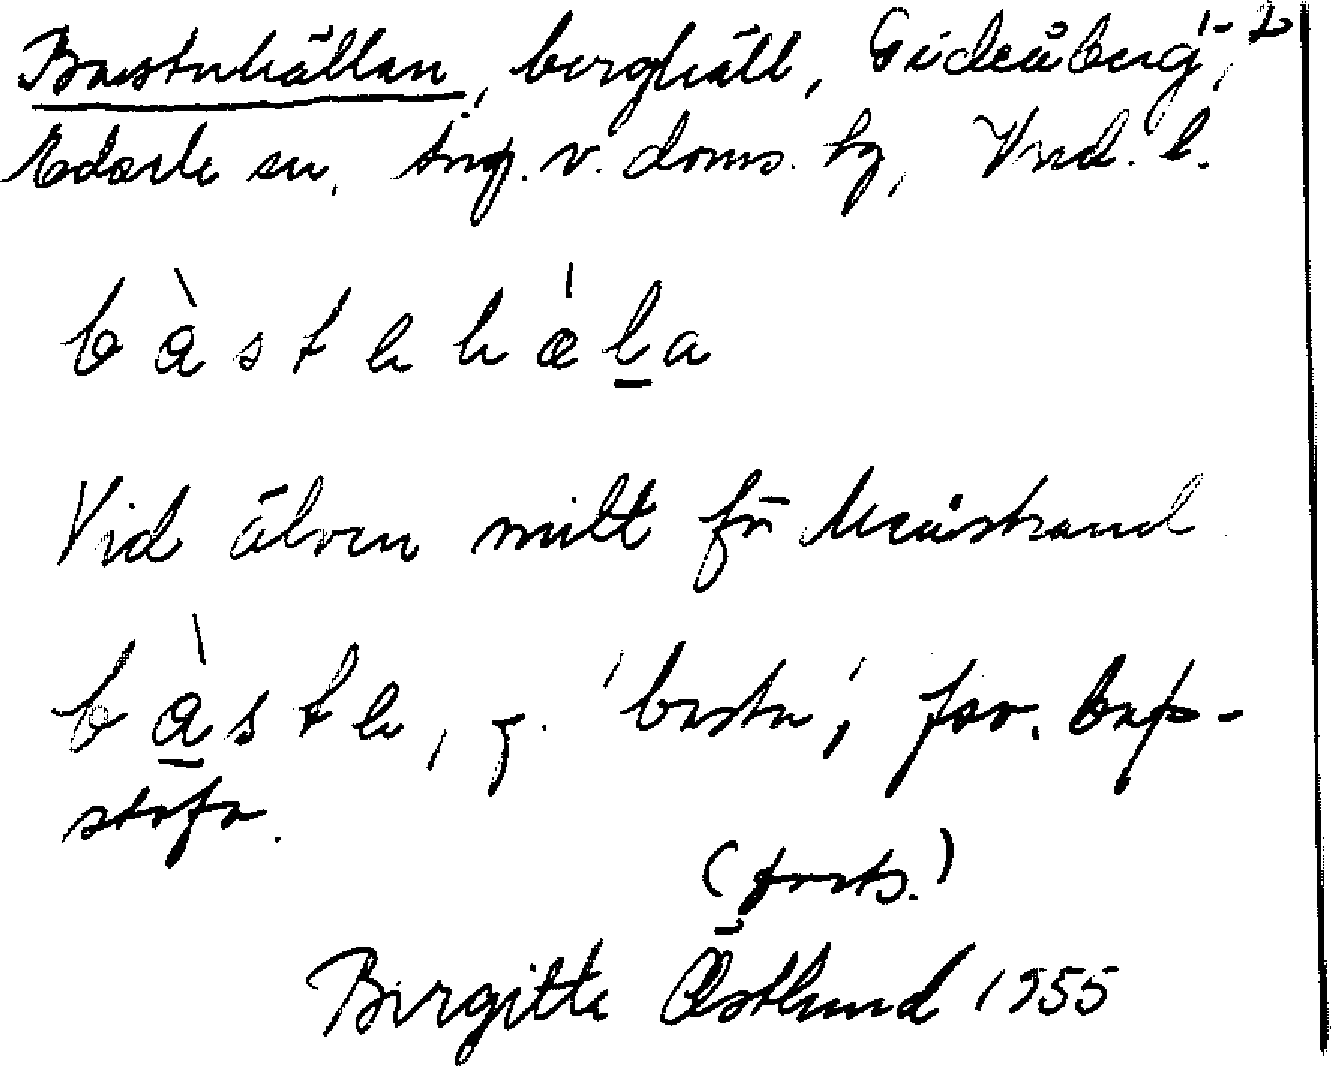 Bastuhällan, berghäll, Gideåberg, 1-2
Edsele sn, Ång. v. doms. tg, Vnd. l.
bàstehàla
Vid älven mitt för strand
bàste, f. 'bastu', fsv. baþ-
stofa.
(forts.)
Birgitta Östlund 1955